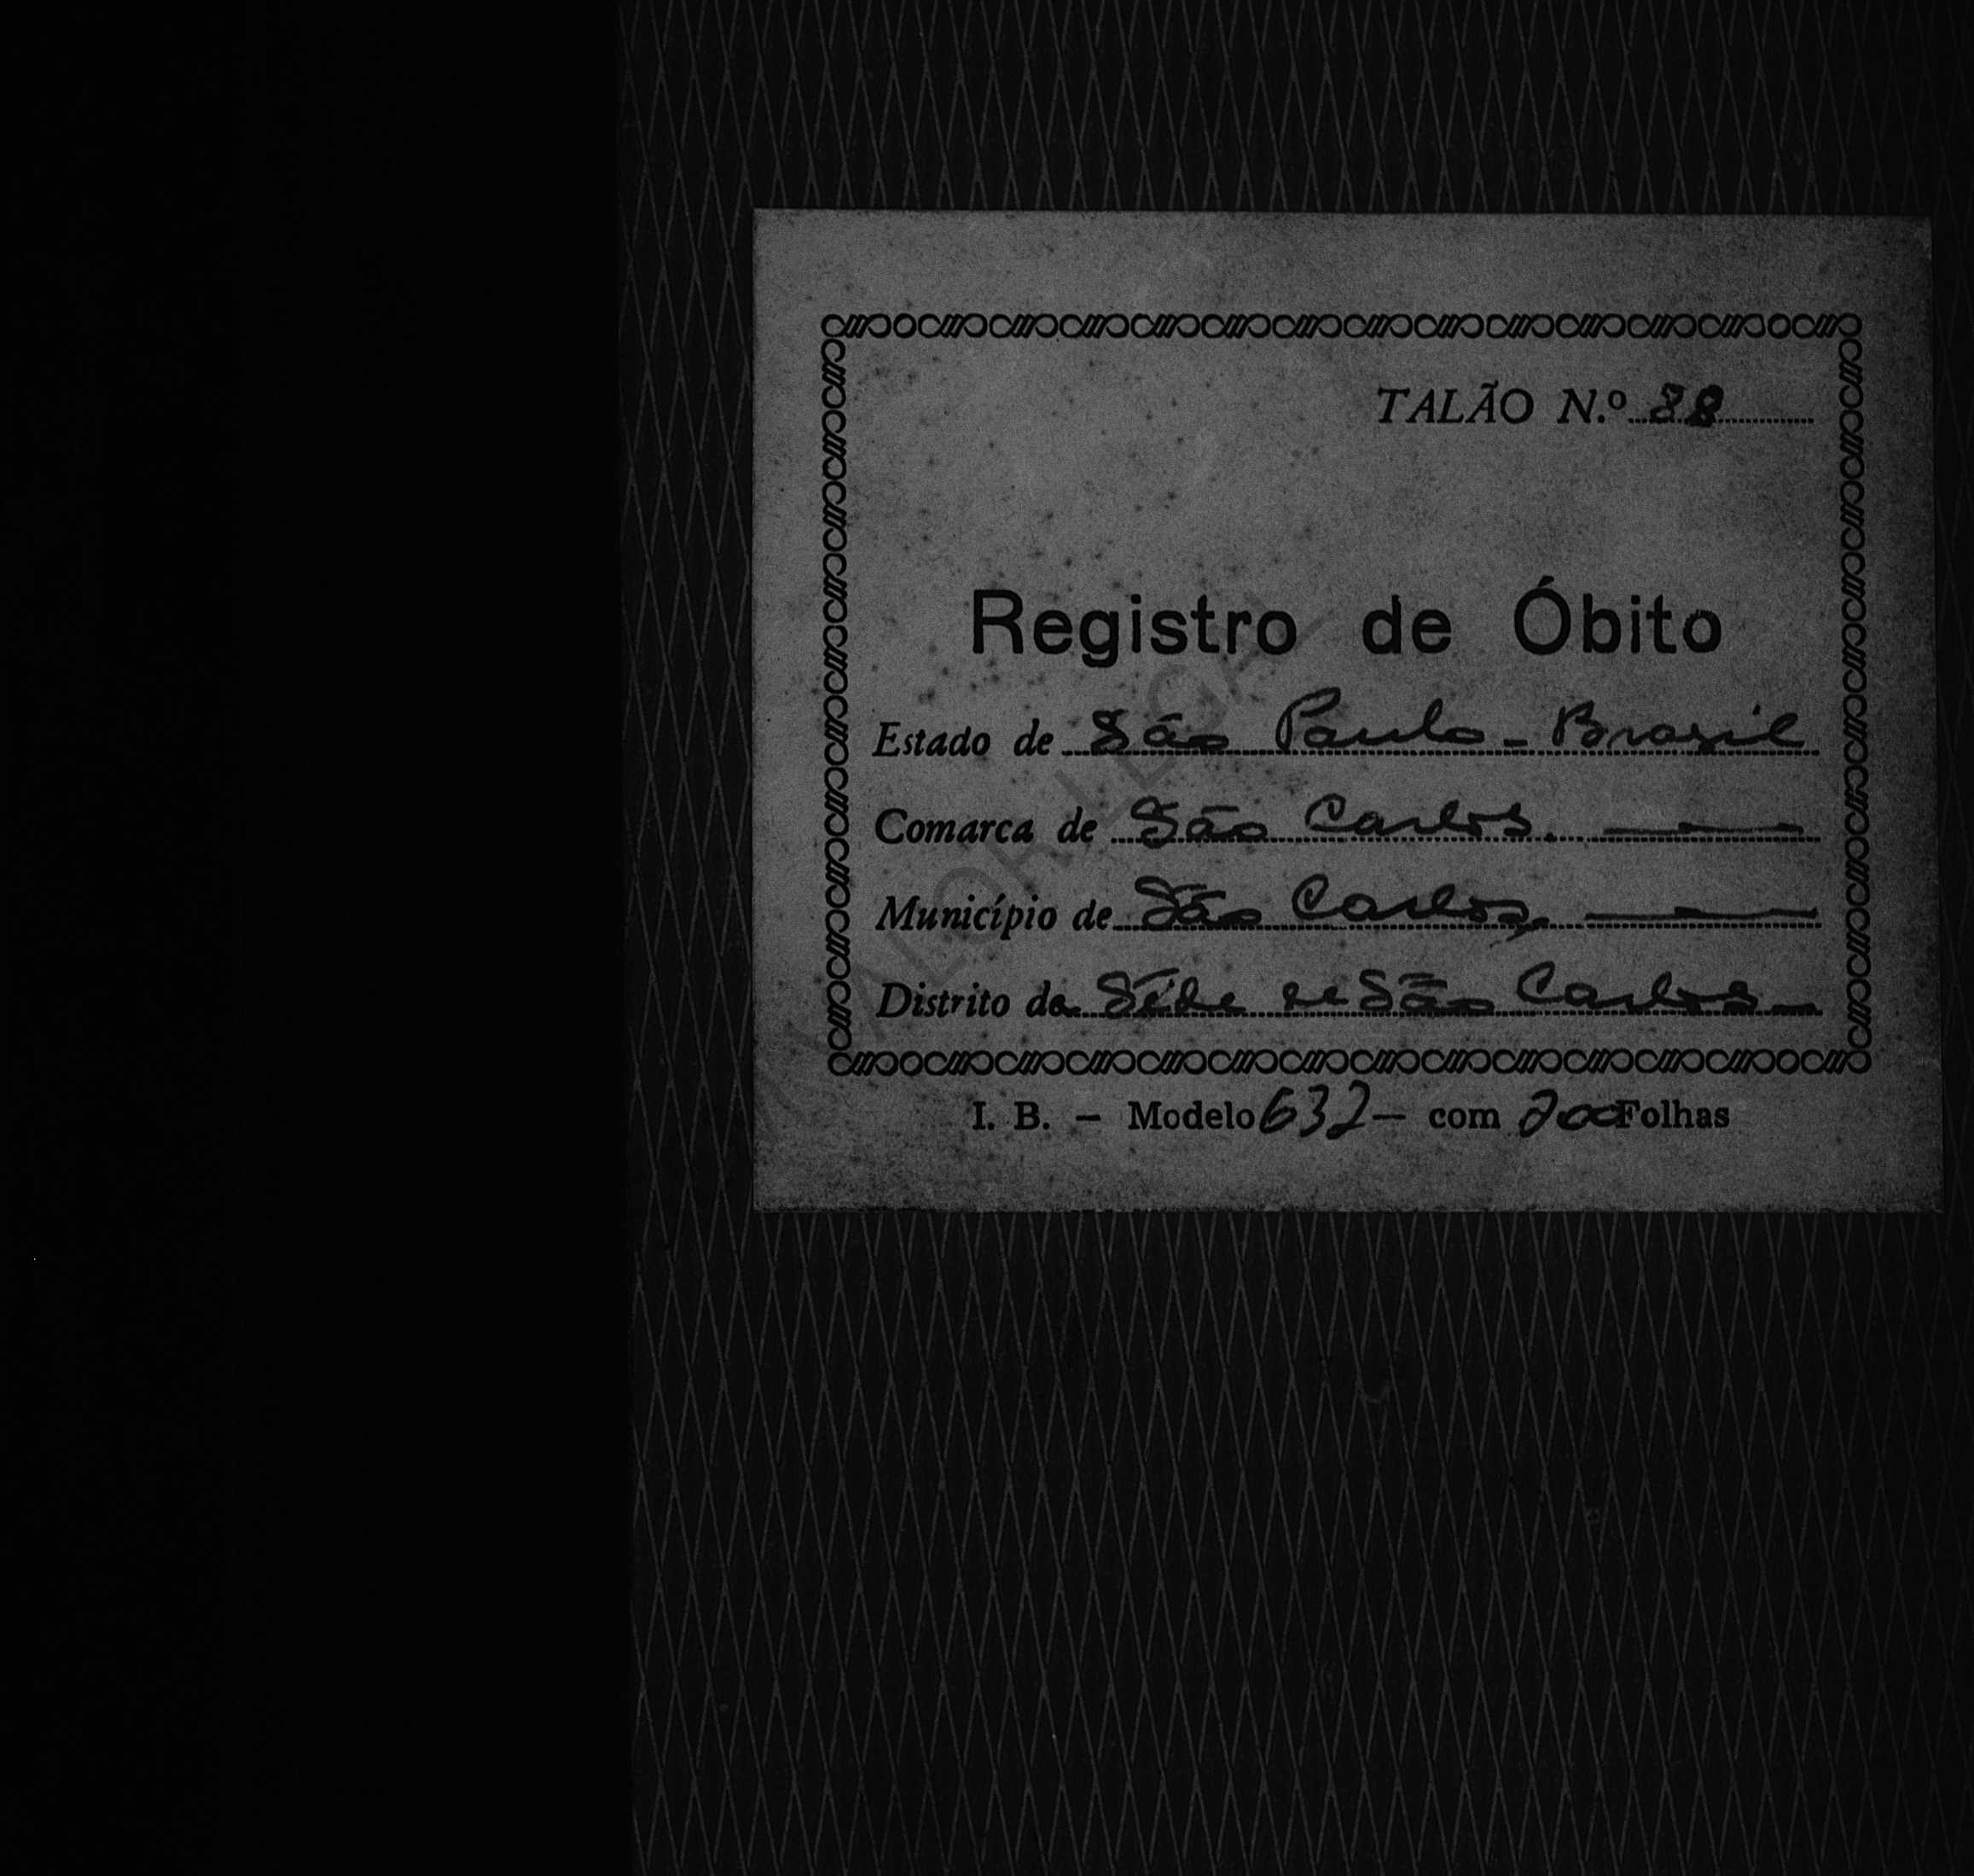 TALÃO N.º 88
Registro de Óbito
Estado de São Paulo - Brasil
Comarca de São Carlos.
Município de São Carlos.
Distrito da Séde de São Carlos -
I. B. - Modelo 632 - com 200 Folhas
VALOR LEGAL